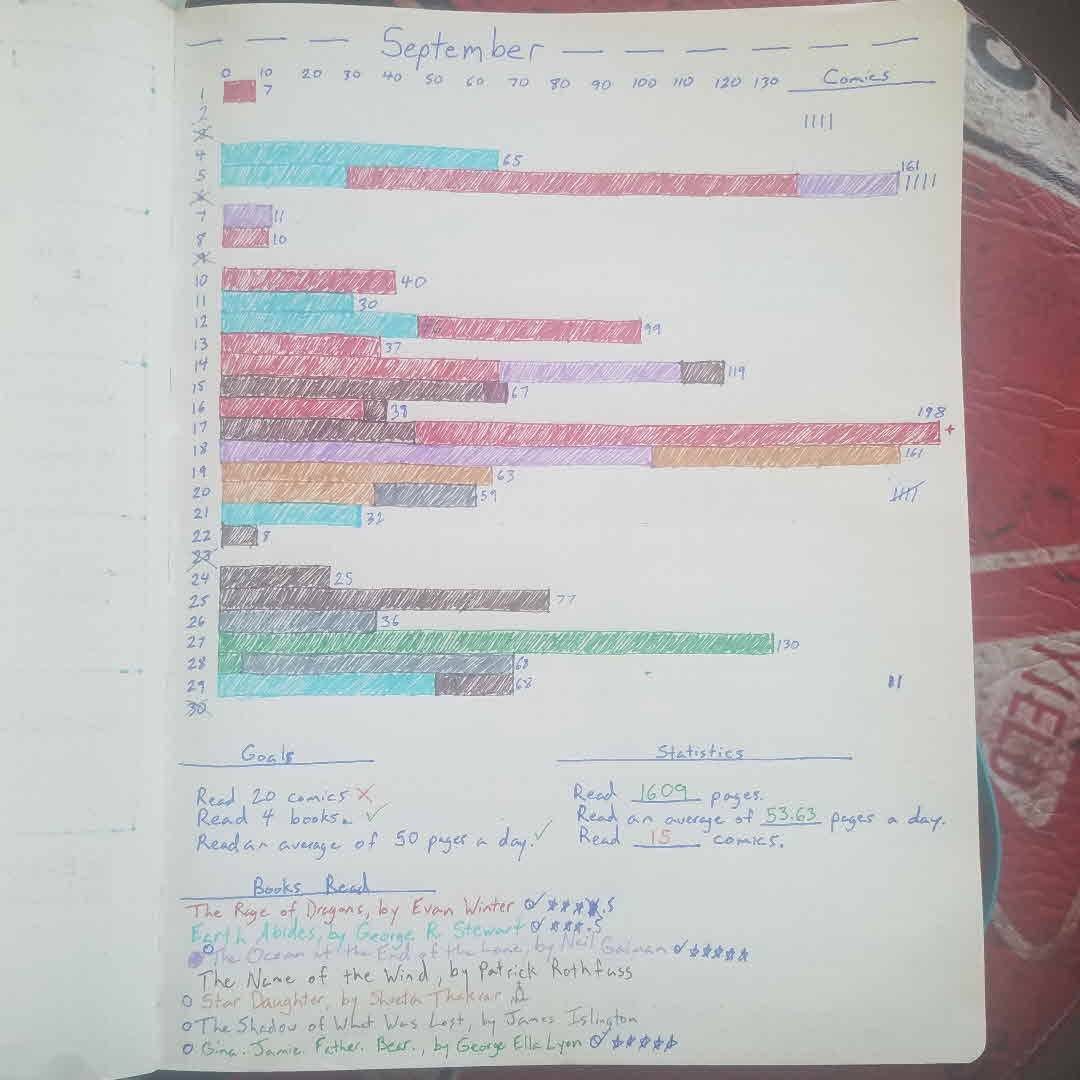 September
0 10 20 30 40 50 60 70 80 90 100 110 120 130 Comics
1 7
2
3
4 65
5 161
6
7 11
8 10
9
10 40
11 30
12 99
13 37
14 119
15 67
16 38
17 198 +
18 161
19 63
20 59
21 32
22 8
23
24 25
25 77
26 36
27 130
28 68
29 68
30
Goals
Read 20 comics X
Read 4 books. ✓
Read an average of 50 pages a day. ✓
Statistics
Read 1609 pages.
Read an average of 53.63 pages a day.
Read 15 comics.
Books Read
The Rage of Dragons, by Evan Winter ✓ ★★★★.5
Earth Abides, by George R. Stewart ✓ ★★★.5
The Ocean at the End of the Lane, by Neil Gaiman ✓ ★★★★★
The Name of the Wind, by Patrick Rothfuss
Star Daughter, by Shveta Thakrar
The Shadow of What Was Lost, by James Islington
Gina. Jamie. Father. Bear., by George Ella Lyon ✓ ★★★★★
YIELD